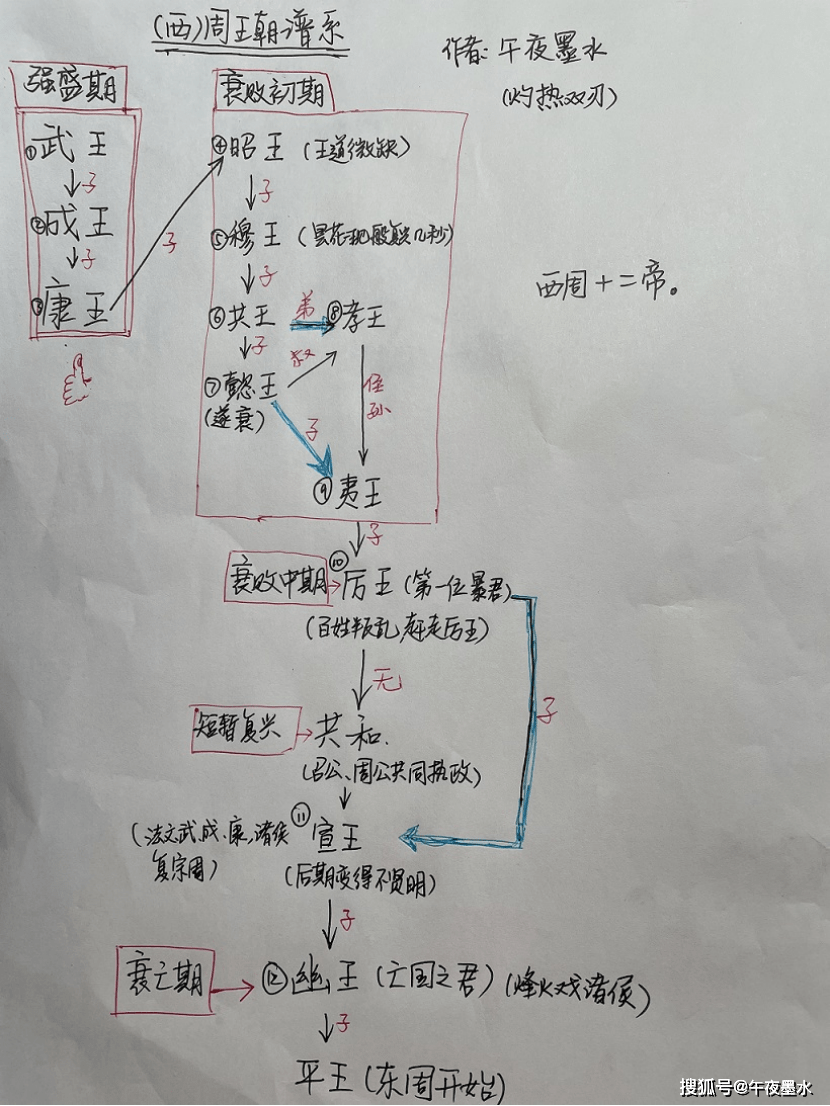 (西)周王朝谱系
作者:午夜墨水
(灼热双刃)
强盛期
①武王
子
②成王
子
③康王
子
衰败初期
④昭王(王道微缺)
子
⑤穆王(昙花一现般复兴几秒)
子
⑥共王 弟 ⑧孝王
子
叔
⑦懿王
(遂衰)
子
侄
孙
⑨夷王
子
西周十二帝。
衰败中期 ⑩厉王(第一位暴君)
(百姓叛乱,赶走厉王)
无
子
短暂复兴 共和.
(召公、周公共同执政)
(法文武,成、康,诸侯
复宗周)
⑪宣王
(后期变得不贤明)
子
衰亡期 ⑫幽王(亡国之君)(烽火戏诸侯)
子
平王(东周开始)
搜狐号@午夜墨水